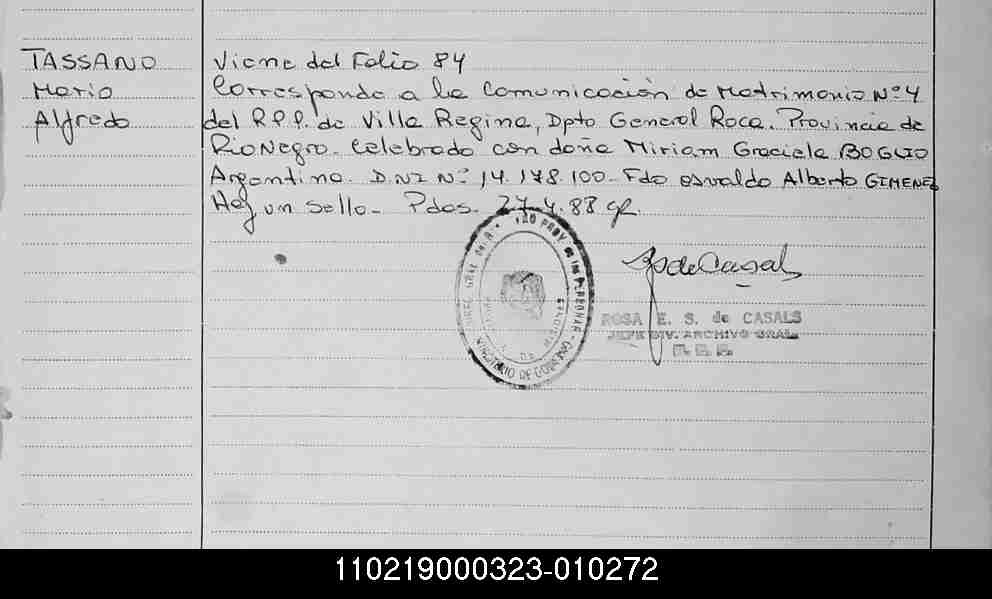 TASSANO
Mario
Alfredo
Viene del Folio 84
Corresponde a la Comunicación de Matrimonio Nº 4
del R.P.P. de Villa Regina, Dpto General Roca. Provincia de
Rio Negro. Celebrado con doña Miriam Graciela BOGLIO
Argentina. D.N.I Nº 14.178.100- Fdo Osvaldo Alberto GIMENEZ
Hay un sello- Pdas. 27.4.88
MINISTERIO DE GOBIERNO
ROSA E. S. de CASALS
JEFE DIV. ARCHIVO GRAL.
110219000323-010272